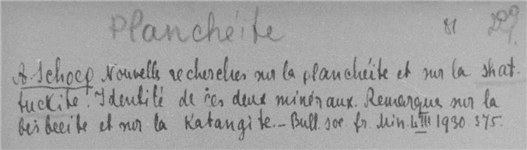 Planchéite 81 289
A. Schoep Nouvelle recherches sur la planchéite et sur la shat-
tuckite. Identité de ces deux minéraux. Remarque sur la
bisbeeite et sur la Katangite. – Bull. soc. fr. Min. LIII 1930. 375.